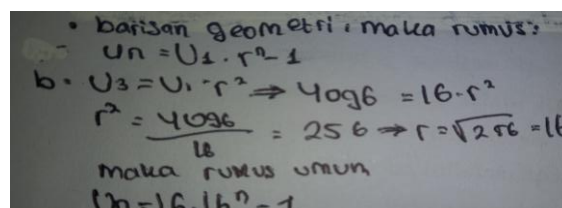 • barisan geometri, maka rumus:
Un = U1 . r^n-1
b. U3 = U1 . r² ⇒ 4096 = 16 . r²
r² = 4096/16 = 256 → r = √256 = 16
maka rumus umum
Un = 16 . 16^n - 1